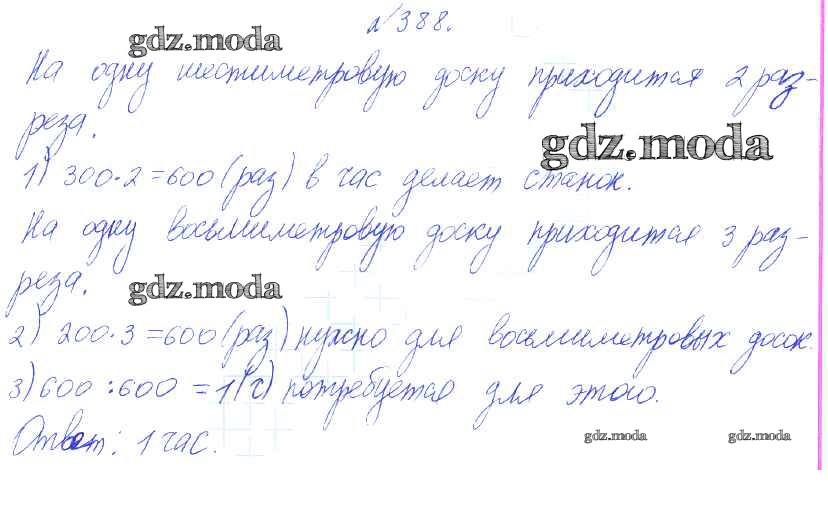 №388.
gdz.moda
На одну шестиметровую доску приходится 2 раз-
реза.
gdz.moda
1) 300·2=600(раз) в час делает станок.
На одну восьмиметровую доску приходится 3 раз-
реза.
gdz.moda
2) 200·3=600(раз) нужно для восьмиметровых досок.
3) 600:600=1(ч) потребуется для этого.
Ответ: 1 час.
gdz.moda gdz.moda